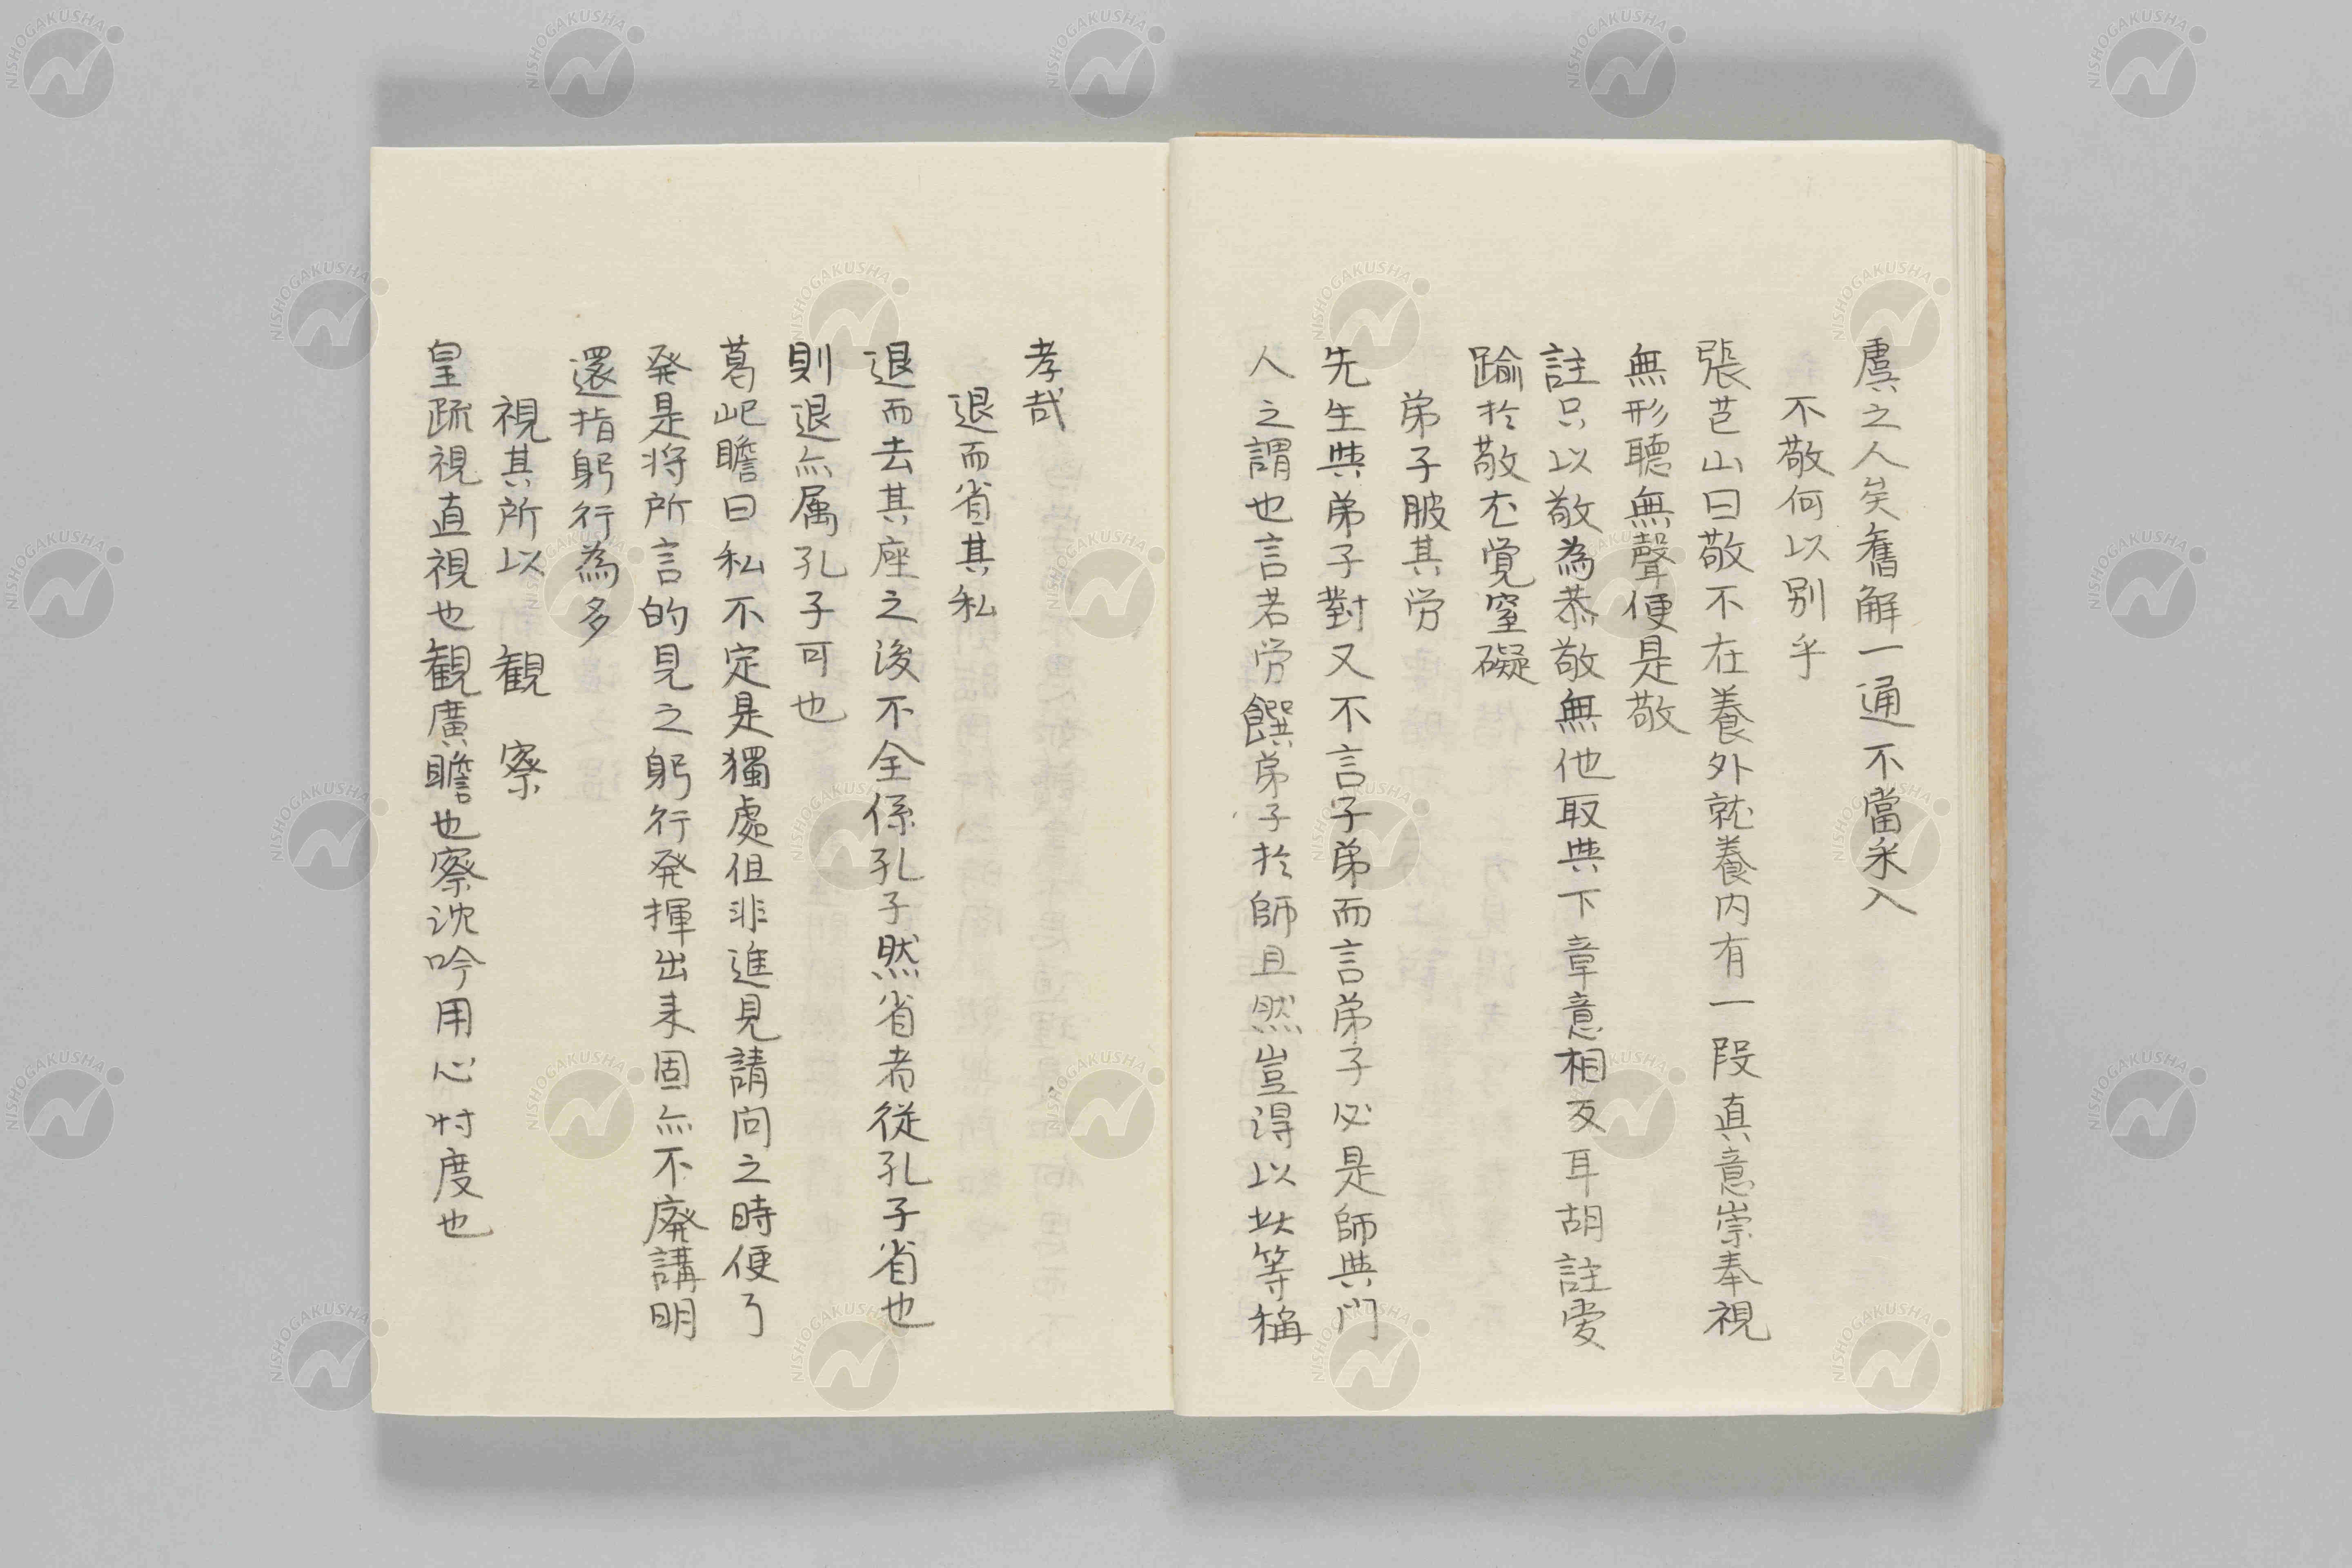 虞之人矣舊解一通不當永入
不敬何以別乎
張芑山曰敬不在養外就養内有一段真意崇奉視
無形聽無聲便是敬
註只以敬為恭敬無他取典下章意相反耳胡註愛
踰於敬尤覚窒礙
弟子服其労
先生典弟子對又不言子弟而言弟子必是師典門
人之謂也言若労饌弟子於師且然豈得以此等稱
孝哉
退而省其私
退而去其座之後不全係孔子然省者從孔子省也
則退亦属孔子可也
葛屺瞻曰私不定是獨處但非進見請问之時便了
発是将所言的見之躬行発揮出来固亦不廃講明
還指躬行為多
視其所以　観　察
皇疏視直視也観廣瞻也察沈吟用心忖度也
NISHOGAKUSHA